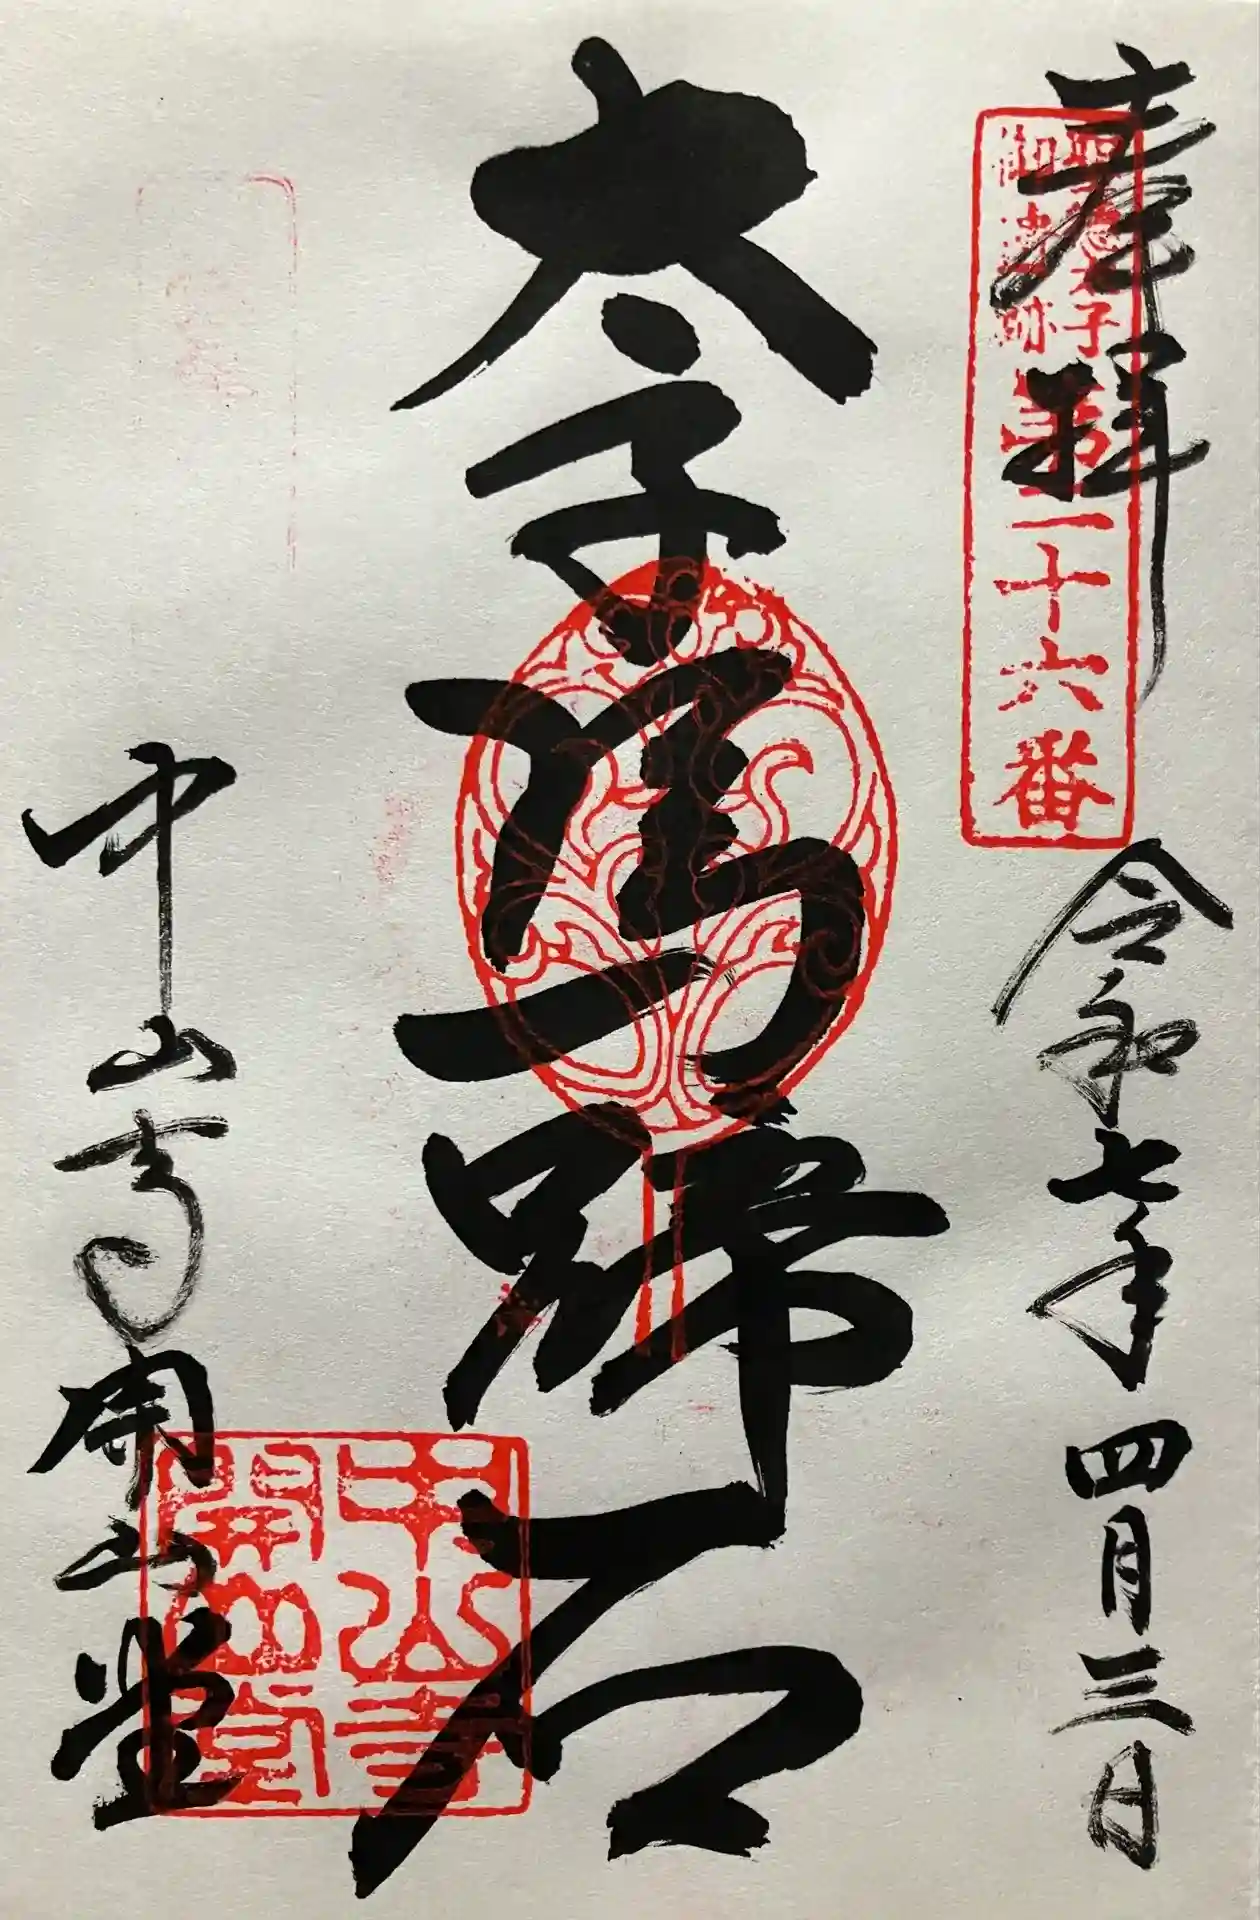 奉拝
聖徳太子
御遺跡
第二十六番
令和七年四月三日
太子馬蹄石
中山寺開山堂
中山寺
開山堂